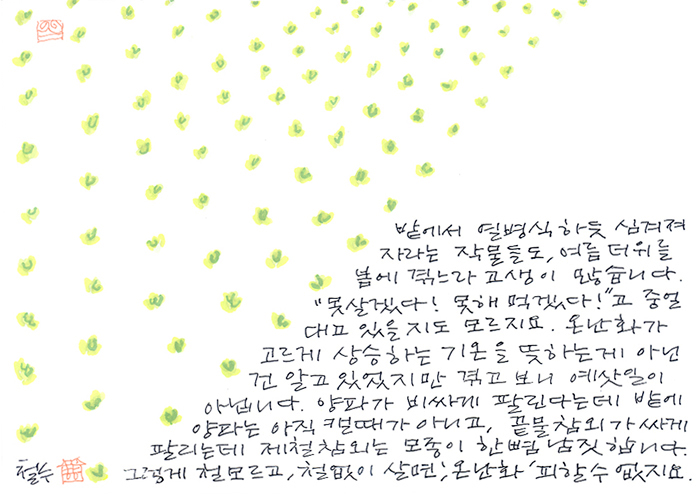 밭에서 열병식 하듯 심겨져
자라는 작물들도, 여름 더위를
봄에 겪느라 고생이 많습니다.
"못살겠다! 못해 먹겠다!"고 중얼
대고 있을지도 모르지요. 온난화가
고르게 상승하는 기온을 뜻하는게 아닌
건 알고 있었지만 겪고 보니 예삿일이
아닙니다. 양파가 비싸게 팔린다는데 밭에
양파는 아직 캘때가 아니고, 끝물 참외가 싸게
팔리는데 제철 참외는 모종이 한뼘 남짓 합니다.
그렇게 철모르고, 철없이 살면, 온난화 피할수 없지요.
철수